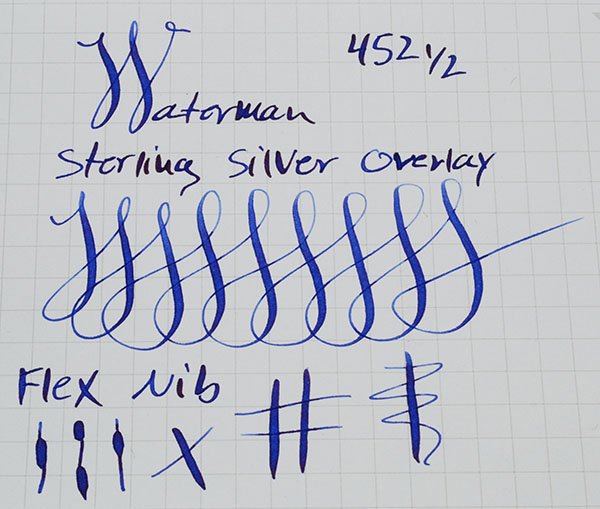 Waterman 452 1/2
Sterling Silver Overlay
Flex Nib